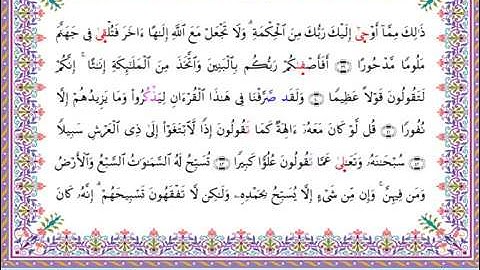 ذَٰلِكَ مِمَّآ أَوْحَىٰٓ إِلَيْكَ رَبُّكَ مِنَ ٱلْحِكْمَةِ ۗ وَلَا تَجْعَلْ مَعَ ٱللَّهِ إِلَٰهًا ءَاخَرَ فَتُلْقَىٰ فِى جَهَنَّمَ
مَلُومًا مَّدْحُورًا أَفَأَصْفَىٰكُمْ رَبُّكُم بِٱلْبَنِينَ وَٱتَّخَذَ مِنَ ٱلْمَلَٰٓئِكَةِ إِنَٰثًا ۚ إِنَّكُمْ
لَتَقُولُونَ قَوْلًا عَظِيمًا وَلَقَد صَّرَّفْنَا فِى هَٰذَا ٱلْقُرْءَانِ لِيَذْكُرُوا۟ وَمَا يَزِيدُهُمْ إِلَّا
نُفُورًا قُل لَّوْ كَانَ مَعَهُۥٓ ءَالِهَةٌ كَمَا تَقُولُونَ إِذًا لَّٱبْتَغَوْا۟ إِلَىٰ ذِى ٱلْعَرْشِ سَبِيلًا
سُبْحَٰنَهُۥ وَتَعَٰلَىٰ عَمَّا تَقُولُونَ عُلُوًّا كَبِيرًا تُسَبِّحُ لَهُ ٱلسَّمَٰوَٰتُ ٱلسَّبْعُ وَٱلْأَرْضُ
وَمَن فِيهِنَّ ۚ وَإِن مِّن شَىْءٍ إِلَّا يُسَبِّحُ بِحَمْدِهِۦ وَلَٰكِن لَّا تَفْقَهُونَ تَسْبِيحَهُمْ ۗ إِنَّهُۥ كَانَ